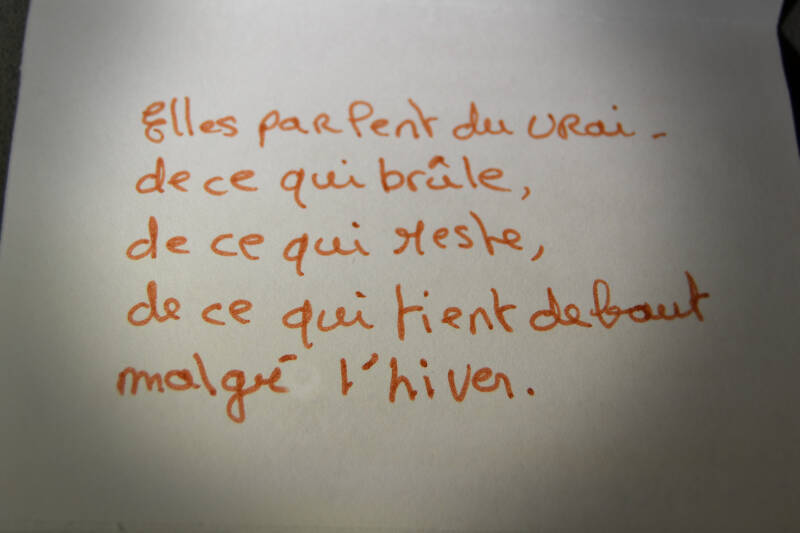 Elles parlent du vrai -
de ce qui brûle,
de ce qui reste,
de ce qui tient debout
malgré l'hiver.